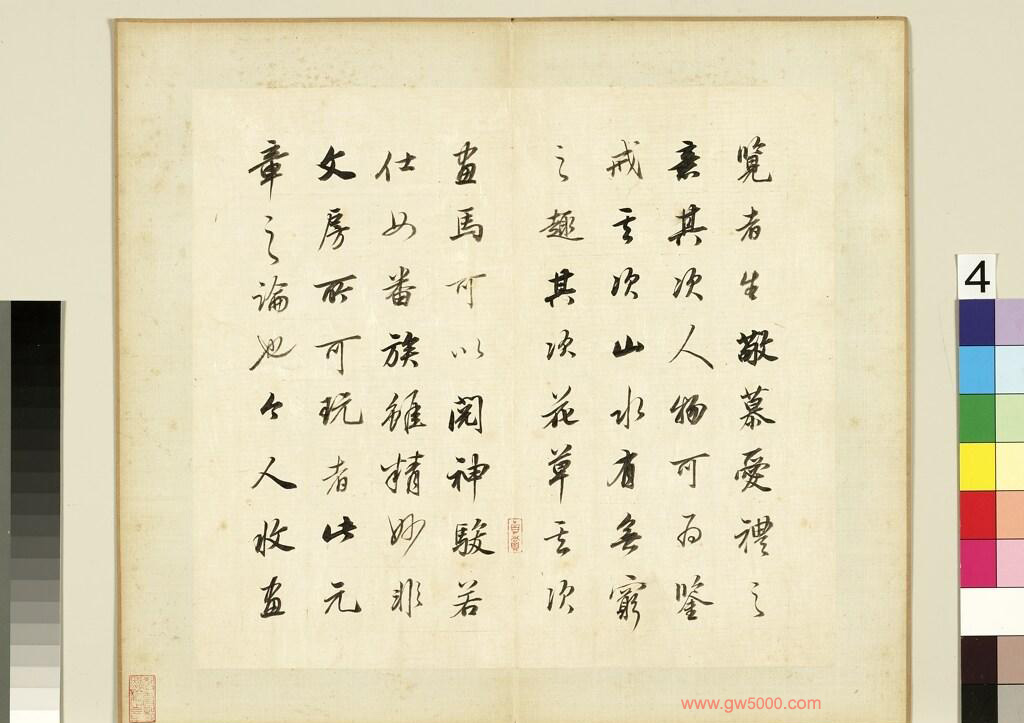 覽者生敬慕愛禮之
意其次人物可為鑒
戒其次山水有無窮
之趣其次花草其次
畫馬可以閱神駿若
仕女番族雖精妙非
文房所可玩者此元
章之論也今人收畫
4
www.gw5000.com